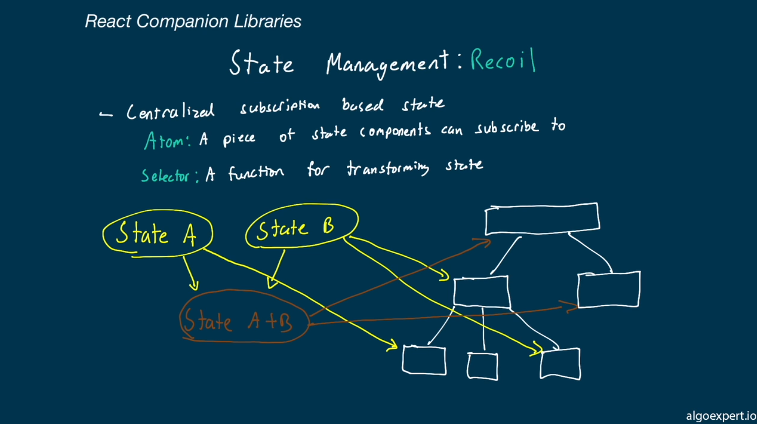 React Companion Libraries
State Management: Recoil
- Centralized subscription based state
Atom: A piece of state components can subscribe to
Selector: A function for transforming state
State A
State B
State A+B
algoexpert.io